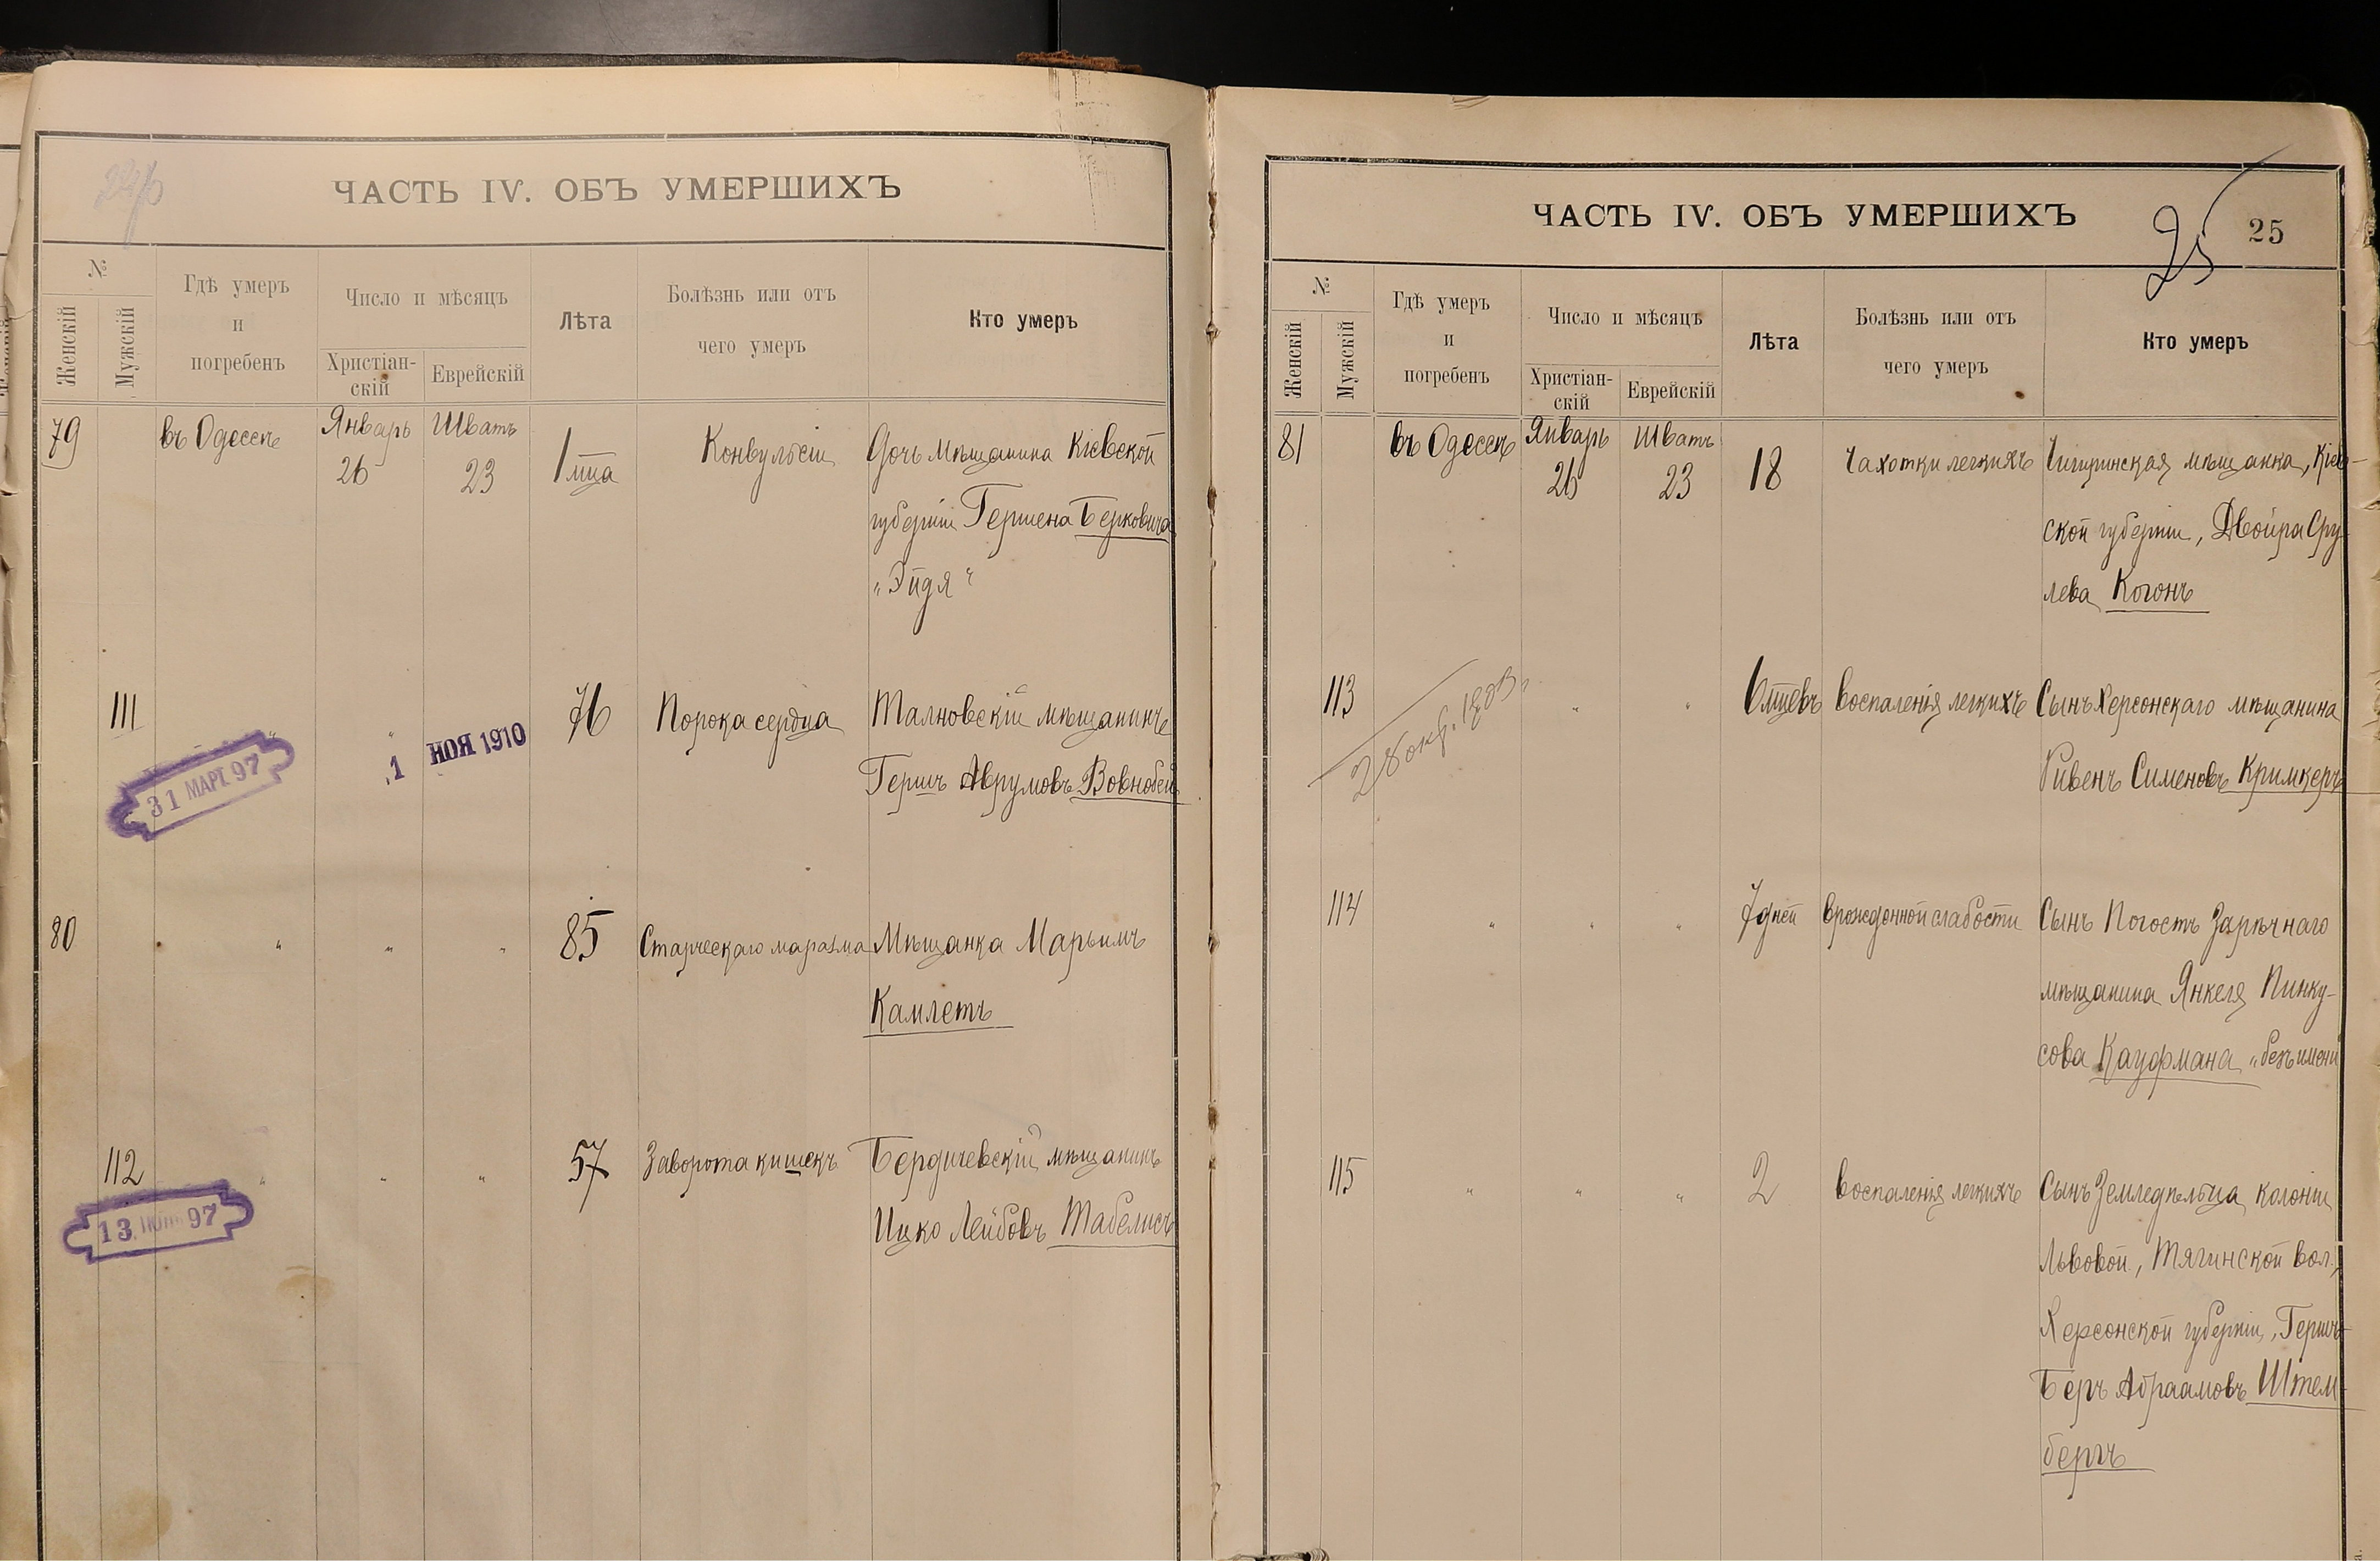 ЧАСТЬ IV. ОБЪ УМЕРШИХЪ
№
Женскій
Мужскій
Гдѣ умеръ
и
погребенъ
Число и мѣсяцъ
Христіан-
скій
Еврейскій
Лѣта
Болѣзнь или отъ
чего умеръ
Кто умеръ
79 въ Одессѣ Январь 26 Шватъ 23 1 мца Конвульсіи Дочь мѣщанина Кіевской
губерніи Гершена Берковича
„Эйдя“
111 „ „ 76 Порока сердца Талновскій мѣщанинъ
Гершъ Аврумовъ Вовнобей
31 МАРТ. 97
1 НОЯ 1910
80 „ „ „ 85 Старческаго маразма Мѣщанка Марьимъ
Камлетъ
112 „ „ „ 57 Заворота кишекъ Бердичевскій мѣщанинъ
Ицко Лейбовъ Табелисъ
13 97
ЧАСТЬ IV. ОБЪ УМЕРШИХЪ
25
25
№
Женскій
Мужскій
Гдѣ умеръ
и
погребенъ
Число и мѣсяцъ
Христіан-
скій
Еврейскій
Лѣта
Болѣзнь или отъ
чего умеръ
Кто умеръ
81 въ Одессѣ Январь 26 Шватъ 23 18 Чахотки легкихъ Чигиринская мѣщанка, Кіев-
ской губерніи, Двойра Сру-
лева Когонъ
113 „ „ 6 мцевъ воспаленія легкихъ Сынъ Херсонскаго мѣщанина
Рувенъ Сименовъ Кримкеръ
28 окт. 1903
114 „ „ „ 7 дней врожденной слабости Сынъ Погостъ Зарѣчнаго
мѣщанина Янкеля Пинку-
сова Кауфмана „безъ имени
115 „ „ „ 2 воспаленія легкихъ Сынъ Земледѣльца колоніи
Львовой, Тягинской вол.,
Херсонской губерніи, Гершъ-
Беръ Абраамовъ Штем-
бергъ